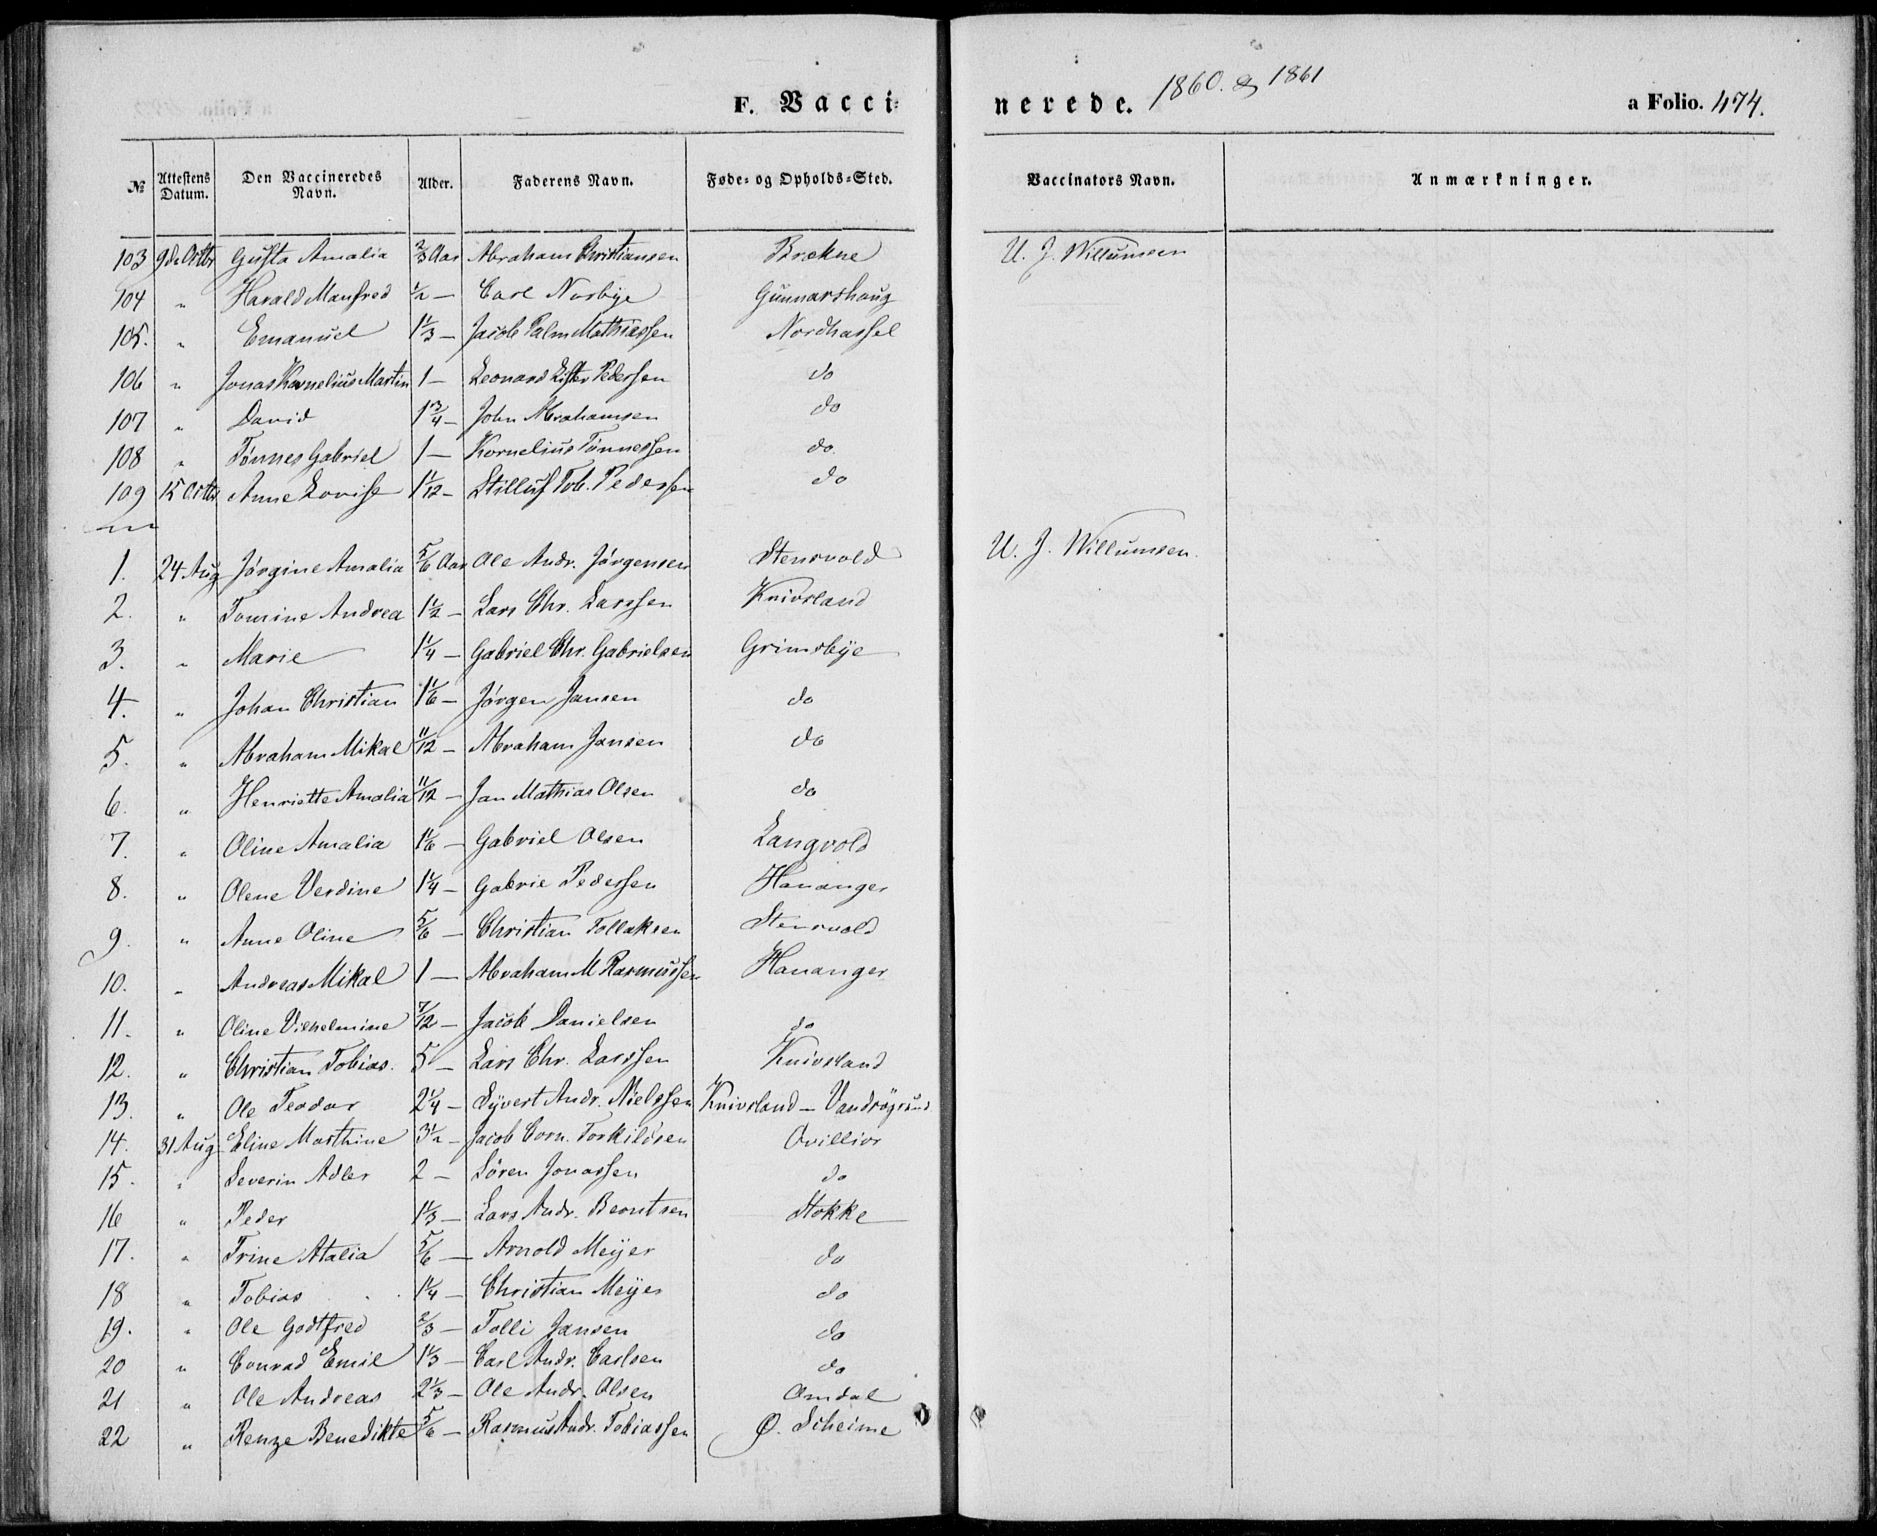 F. Vacci- nerede. 1860. & 1861 a Folio. 474.
№ Attestens Datum. Den Vaccineredes Navn. Alder. Faderens Navn. Føde- og Opholds-Sted. Vaccinators Navn. Anmærkninger.
103 9de Octbr Gusta Amalia 2/3 Aar Abraham Christiansen Brekne U. J. Willumsen
104 " Harald Manfred 1/2 — Carl Norbye Gunnarshaug
105. " Emanuel 1 1/3 — Jacob Palm Mathiassen Nordhassel
106 " Jonas Kornelius Martin 1 — Leonard Lister Pedersen do
107 " David 1 3/4 — John Abrahamsen do
108 " Tønnes Gabriel 1 — Kornelius Tønnessen do.
109 15 Octbr Anne Lovise 1 1/12 — Stilluf Tob. Pedersen do
1. 24 Aug Jørgine Amalia 5/6 Aar Ole Andr. Jørgensen Stensvold U. J. Willumsen.
2. " Tomine Andrea 1 1/2 — Lars Chr. Larssen Knivsland
3. " Marie 1 1/4 — Gabriel Chr. Gabrielsen Grimsbye
4. " Johan Christian 1 1/6 — Jørgen Jansen do
5. " Abraham Mikal 11/12 — Abraham Jansen do
6. " Henriette Amalia 11/12 — Jan Mathias Olsen do
7. " Oline Amalia 1 1/6 — Gabriel Olsen Langvold
8. " Olene Verdine 1 1/4 — Gabrie Pedersen Hananger
9. " Anne Oline 5/6 — Christian Tollaksen Stensvold
10. " Andreas Mikal 1 — Abraham M Rasmussen Hananger
11. " Oline Vilhelmine 7/12 — Jacob Danielsen do
12. " Christian Tobias. 5 — Lars Chr. Larssen Knivsland
13. " Ole Teodor 2 1/4 — Syvert Andr. Nielssen Knivsland —
14. 31 Aug Eline Marthine 3 1/2 — Jacob Corn. Torkildsen Ovillior
15. " Severin Adler 2 — Sören Jonassen do
16 " Peder 1 1/3 — Lars Andr. Berntsen Stokke
17. " Trine Atalia 5/6 — Arnold Meyer do
18 " Tobias 1 1/4 — Christian Meyer do
19. " Ole Godtfred 2/3 — Tolli Jansen do
20 " Conrad Emil 1 1/3 — Carl Andr. Carlsen do
21 " Ole Andreas 2 1/3 — Ole Andr. Olsen Omdal
22 " Renze Benedikte 5/6 — Rasmus Andr. Tobiassen Ø. Skeime